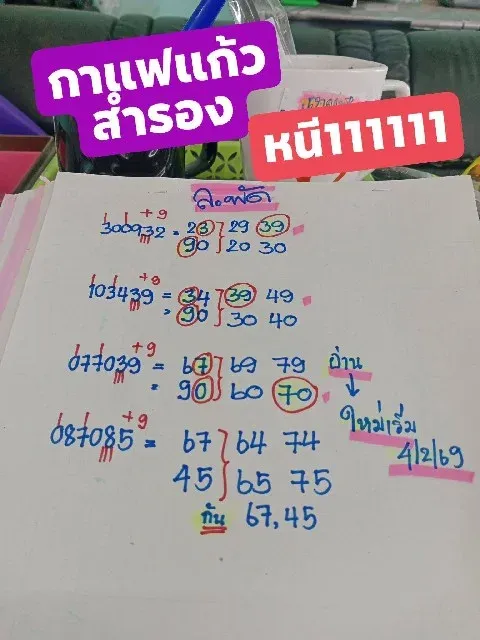 กาแฟแก้ว
สำรอง
หนี111111
ละพัด
+9
300932 = 23 } 29 39
90 } 20 30
+8
103439 = 34 } 39 49
= 90 } 30 40
+9
077039 = 67 } 69 79 อ่าน
= 90 } 60 70 ↓
ใหม่เริ่ม
+9
087085 = 67 } 64 74 4/2/69
45 } 65 75
กัน 67,45